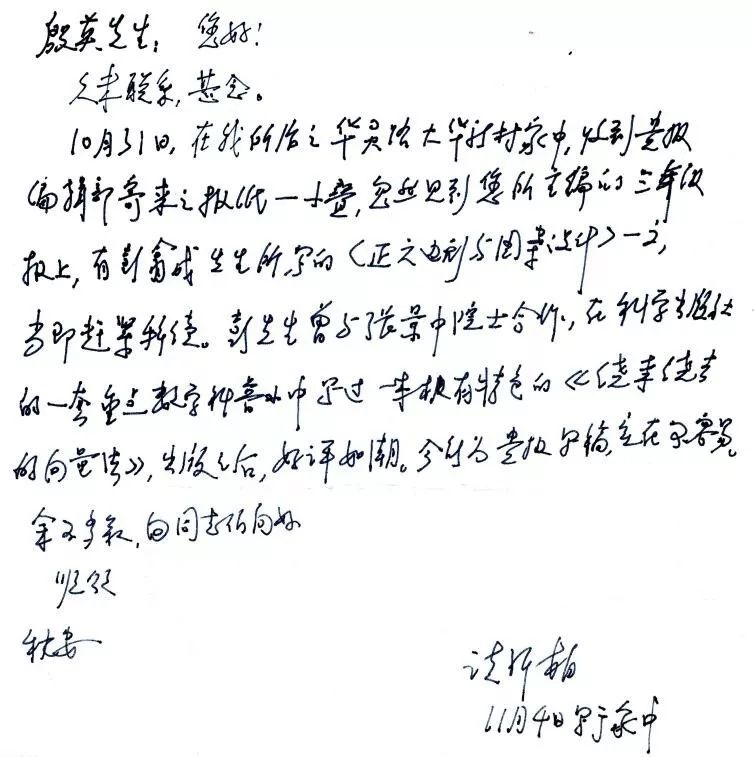 殷英先生：您好！
久未联系，甚念。
10月31日，在我所居之华灵路大华新村家中，收到贵报
编辑部寄来之报纸一小叠，忽然见到您所主编的三年级
报上，有彭翕成先生所写的〈正六边形与图案设计〉一文，
当即赶紧拜读。彭先生曾与张景中院士合作，在科学出版社
的一套重点数学科普丛书中写过一本极有特色的《绕来绕去
的向量法》，出版之后，好评如潮。今能为贵报写稿，实在不容易。
余不多叙，向同志们问好
顺颂
秋安
谈祥柏
11月4日写于家中